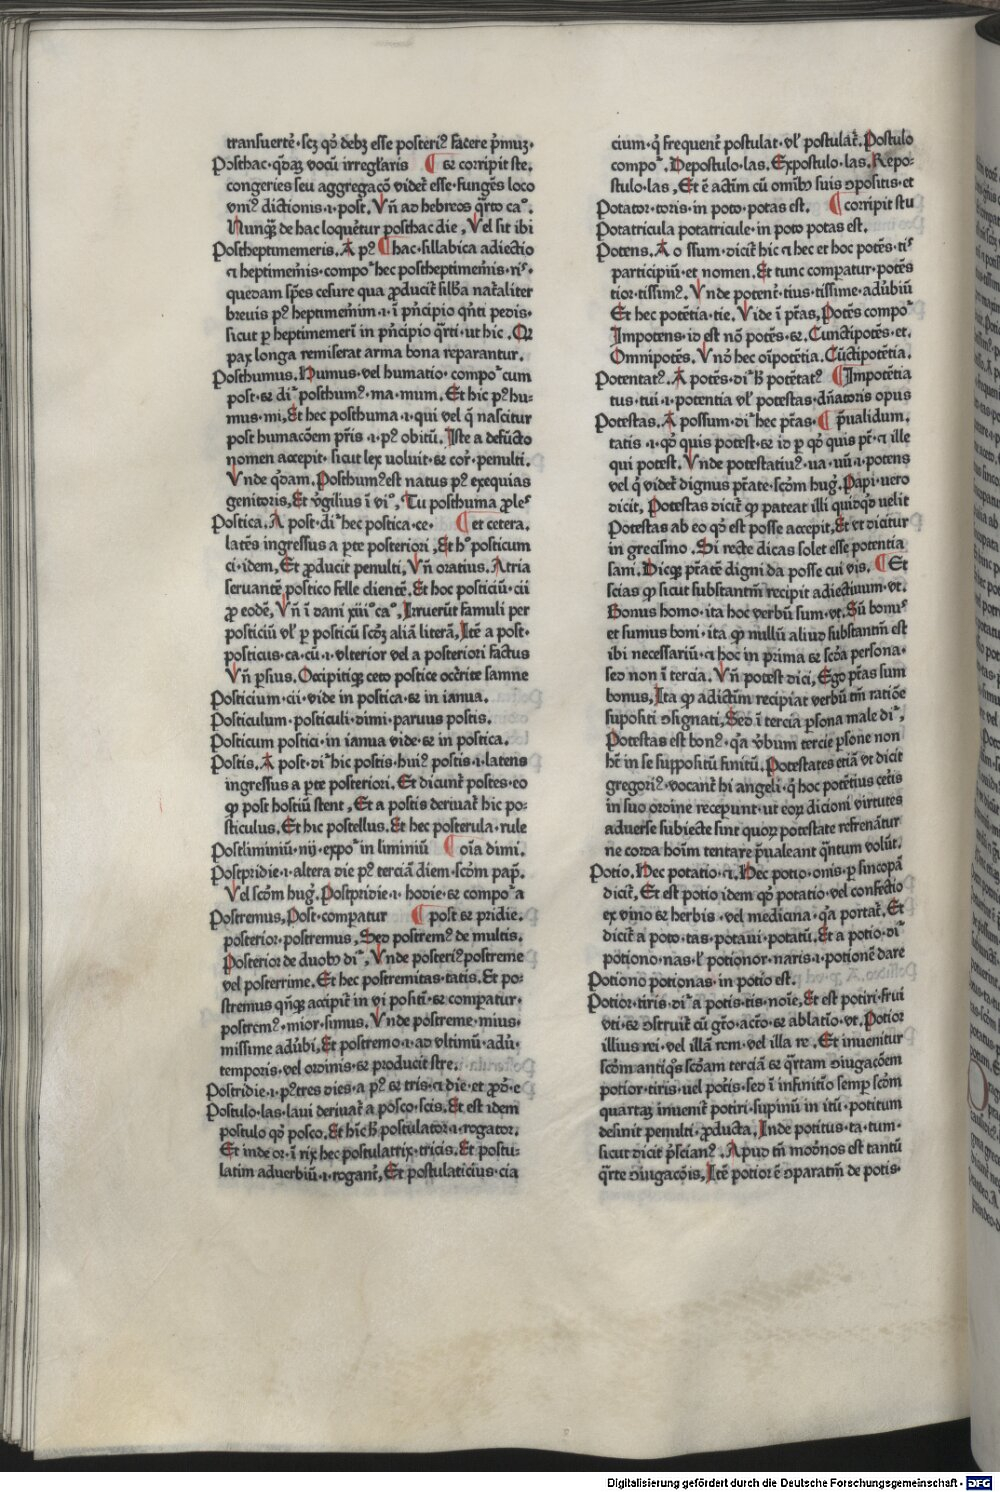 transuerte᷑·scꝫ qđ debꝫ esse posteriꝰ facere p̃muꝫ·
Posthac·qđaꝫ vocũ irregl̃aris ¶ ⁊ corripit ste.
congeries seu aggregacõ videt᷑ esse·fungẽs loco
vniꝰ dictionis·i·post. Vñ ad hebreos q̃rto caº.
Nunqꝫ de hac loquet᷑ur posthac die, Vel sit ibi
Postheptimemeris. A pꝰ ¶ hac·sillabica adiectio
⁊ heptimem̃is·compoʳ hec postheptimem̃is·riˢ·
quedam sp̃es cesure qua ꝓducit᷑ silb̃a nat᷑aliter
breuis pꝰ heptimem̃im·i·ĩ pñcipio q̃nti pedis·
sicut ꝑ heptimemerĩ in pñcipio q̃rti·ut hic. Qꝛ
pax longa remiserat arma bona reparantur.
Posthumus. Humus·vel humatio·compoʳ cum
post·⁊ diʳ posthumꝰ·ma·mum. Et hic pꝰhu-
mus·mi, Et hec posthuma·i·qui vel q̃ nascitur
post humacõem pr̃is·i·pꝰ obitũ. Iste a defũcto
nomen accepit·sicut lex uoluit·⁊ cor᷑·penulti.
Vnde q̃dam. Posthumꝰ est natus pꝰ exequias
genitoris, Et v̓gilius ĩ viº, Tu posthuma ꝓles
Postica. A post·diʳ hec postica·ce· ¶ et cetera.
latẽs ingressus a ꝑte posteriori, Et hº posticum
ci·idem, Et ꝓducit penulti. Vñ oratius. Atria
seruantẽ postico felle clientẽ. Et hoc posticiũ·cii
ꝓ eodẽ, Vñ ĩ dani xiiiº caº, Irruerũt famuli per
posticiũ vl̃ ꝑ posticũ scđꝫ aliã literã, Itẽ a post·
posticus·ca·cũ·i·vlterior vel a posteriori factus
Vñ ꝑsius. Occipitiqꝫ ceto postice occ̃rite samne
Posticium·cii·vide in postica·⁊ in ianua.
Posticulum·posticuli·dimi·paruus postis.
Posticum postici·in ianua vide·⁊ in postica.
Postis. A post·diʳ hic postis·huiꝰ postis·i·latens
ingressus a ꝑte posteriori. Et dicunt᷑ postes·eo
ꝙ post hostiũ stent, Et a postis deriuat᷑ hic po-
sticulus. Et hic postellus. Et hec posterula·rule
Postliminiũ·nij·expoʳ in liminiũ ¶ oĩa dimi.
Postpridie·i·altera die pꝰ terciã diem·scđm pap̃.
Vel scđm hug̃. Postpridie·i·hodie·⁊ compoʳ a
Postremus, Post·compatur ¶ post ⁊ pridie.
posterior·postremus, Sed postremꝰ de multis.
Posterior de duobꝫ diʳ, Vnde posteriꝰ postreme
vel posterrime. Et hec postremitas·tatis. Et po-
stremus qñqꝫ accipit᷑ in vi positĩ·⁊ compatur·
postremꝰ·mior·simus. Vnde postreme·mius·
missime adũbi, Et postremo·i·ad vltimũ·adũ·
temporis·vel ordinis·⁊ producit stre.
Postridie·i·pꝰtres dies·a pꝰ ⁊ tris·⁊ die·et ꝓđ·e
Postulo·las·laui deriuat᷑ a posco·scis. Et est idem
postulo qđ posco. Et hĩc ħ postulator·i·rogator.
Et inde·or·ĩ rix hec postulatrix·tricis. Et postu-
latim aduerbiũ·i·rogant᷑, Et postulaticius·cia
cium·q̓ frequent᷑ postulat·vl̃ postulat᷑. Postulo
compoʳ. Depostulo·las. Expostulo·las. Repo-
stulo·las, Et ẽ actiũ cũ omĩbꝫ suis ɔpositis·et
Potator·toris·in poto·potas est. ¶ corripit stu
Potatricula potatricule·in poto potas est.
Potens. A o ssum·dicit᷑ hic ⁊ hec et hoc potẽs·tiˢ
participiũ·et nomen. Et tunc compatur·potẽs
tior·tissimꝰ. Vnde potent᷑·tius·tissime·adũbiũ
Et hec potẽtia·tie. Vide ĩ pt̃as, Potẽs compoʳ
Impotens·id est nõ potẽs·⁊. Cunctipotẽs·et.
Omnipotẽs. Vnđ hec oĩpotẽtia. Cũctipotẽtia.
Potentatꝰ. A potẽs·diʳ ħ potẽtatꝰ ¶ Impotẽtia
tus·tui·i·potentia vl̃ potestas·dñatoris opus
Potestas. A possum·diʳ hec pt̃as· ¶ p̃ualidum.
tatis·i·qđ quis potest·⁊ id ꝑ qđ quis pt᷑·⁊ ille
qui potest. Vnde potestatiuꝰ·ua·uũ·i·potens
vel q̓ videt᷑ dignus pt̃ate·scđm hug̃. Papi·uero
dicit, Potestas dicit᷑ ꝙ pateat illi quidqđ uelit
Potestas ab eo qđ est posse accepit, Et vt dicitur
in grecismo. Si recte dicas solet esse potentia
sani. Dicqꝫ pt̃atẽ digni da posse cui vis. ¶ Et
scias ꝙ sicut substantiũ recipit adiectiuum·vt.
Bonus homo·ita hoc verbũ sum·vt. Sũ bonus
et sumus boni·ita ꝙ nullũ aliud substantiũ est
ibi necessariũ·⁊ hoc in prima ⁊ scđa persona·
sed non ĩ tercia. Vñ potest dici, Ego pt̃as sum
bonus, Ita ꝙ adictiũ recipiat verbũ tm̃ ratiõe
suppositi ɔsignati, Sed ĩ tercia ꝑsona male diʳ,
Potestas est bonꝰ·q̃a ṽbum tercie ꝑsone non
ht᷑ in se suppositũ finitũ. Potestates etiã vt dicit
gregoriꝰ·vocant᷑ hi angeli·q̓ hoc potẽtius cet᷑is
in suo ordine receperunt·ut eoꝝ dicioni virtutes
aduerse subiecte sint quoꝝ potestate refrenãtur
ne corda hoĩm tentare p̃ualeant q̃ntum volũt.
Potio. Hec potatio·⁊. Hec potio·onis·ꝑ sincopã
dicit᷑, Et est potio idem qđ potatio·vel confectio
ex vino ⁊ herbis·vel medicina·q̃a portat᷑. Et
dicit᷑ a poto·tas·potaui·potatũ. Et a potio·diʳ
potiono·nas·l̃ potionor·naris·i·potionẽ dare
Potiono potionas·in potio est.
Potior·tiris·diʳ a potis·tis·noĩe, Et est potiri·frui
vti·⁊ ɔstruit᷑ cũ gt̃o·act̃o·⁊ ablatiõ·vt. Potior
illius rei·vel illã rem·vel illa re. Et inuenitur
scđm antiqđs scđam terciã ⁊ q̃rtam ɔiugacõem
potior·tiris·uel pot᷑is·sed ĩ infinitio semꝑ scđm
quartaꝫ inuenit᷑ potiri·supinũ in itũ·potitum
desinit penulti·ꝓducta, Inde potitus·ta·tum·
sicut dicit p̃scianꝰ. Apud tñ mođnos est tantũ
q̃rte ɔiugacõis, Itẽ potior ẽ ɔparatm̃ de potis·
Digitalisierung gefördert durch die Deutsche Forschungsgemeinschaft - DFG